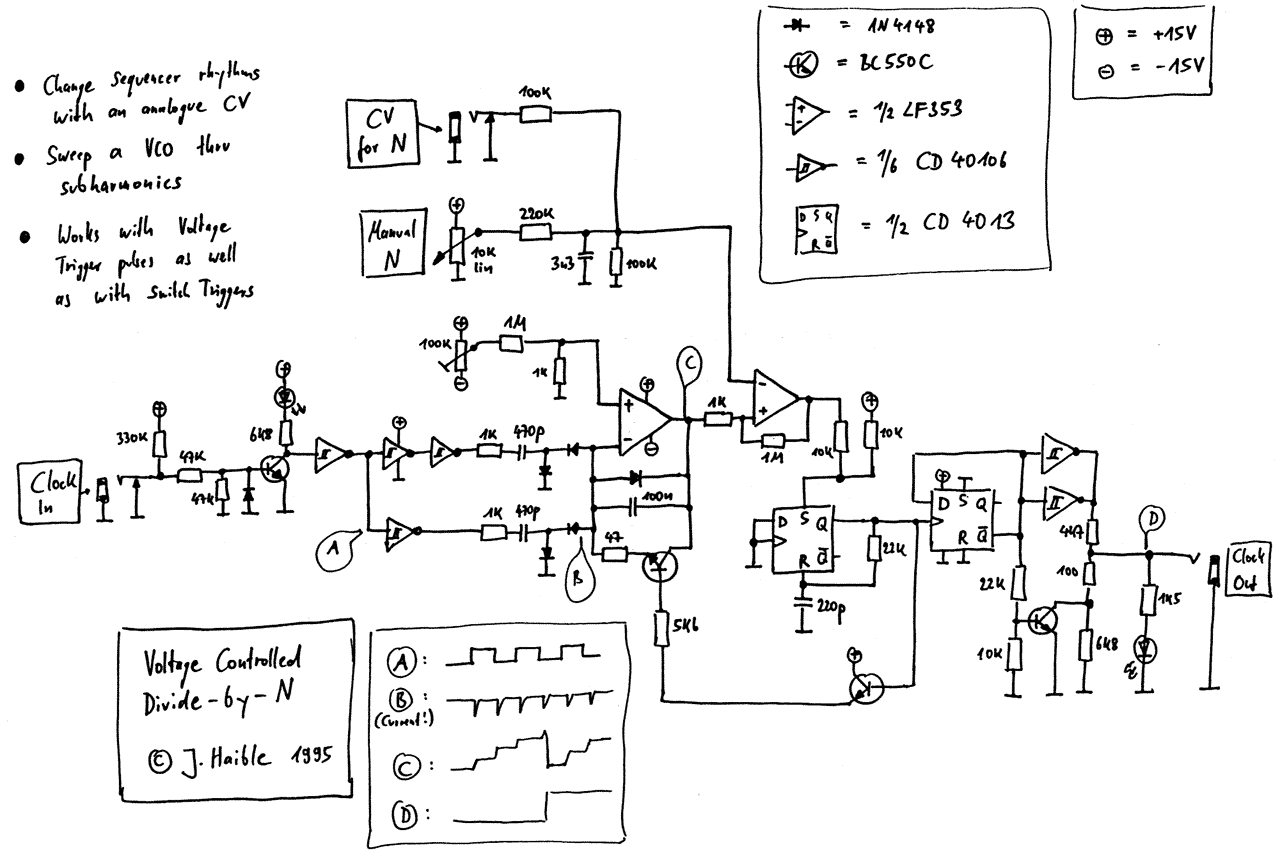 ● Change sequencer rhythms
with an analogue CV
● Sweep a VCO thru
subharmonics
● Works with Voltage
Trigger pulses as well
as with Switch Triggers
CV
for N
100K
Manual
N
⊕
10K
lin
220K
3n3
100K
= 1N4148
= BC550C
+
-
= 1/2 LF353
= 1/6 CD 40106
D S Q
R Q̅
= 1/2 CD 4013
⊕ = +15V
⊖ = -15V
⊕
100K
⊖
1M
1K
+
-
⊕
⊖
C
1K
-
+
1M
10K
⊕
10K
Clock
In
⊕
330K
47K
47K
⊕
6K8
⊕
1K
470p
1K
470p
A
B
100n
47
5K6
D S Q
R Q̅
22K
220p
⊕
⊕
D S Q
R Q̅
22K
10K
4K7
100
6K8
D
1K5
Clock
Out
Voltage Controlled
Divide-by-N
© J. Haible 1995
A :
B :
(Current!)
C :
D :